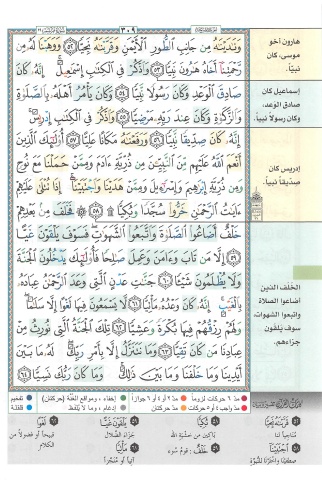 ٣٠٩
وَنَٰدَيْنَٰهُ مِن جَانِبِ ٱلطُّورِ ٱلْأَيْمَنِ وَقَرَّبْنَٰهُ نَجِيًّا ٥٢ وَوَهَبْنَا لَهُۥ مِن
رَّحْمَتِنَآ أَخَاهُ هَٰرُونَ نَبِيًّا ٥٣ وَٱذْكُرْ فِى ٱلْكِتَٰبِ إِسْمَٰعِيلَ إِنَّهُۥ كَانَ
صَادِقَ ٱلْوَعْدِ وَكَانَ رَسُولًا نَّبِيًّا ٥٤ وَكَانَ يَأْمُرُ أَهْلَهُۥ بِٱلصَّلَوٰةِ
وَٱلزَّكَوٰةِ وَكَانَ عِندَ رَبِّهِۦ مَرْضِيًّا ٥٥ وَٱذْكُرْ فِى ٱلْكِتَٰبِ إِدْرِيسَ
إِنَّهُۥ كَانَ صِدِّيقًا نَّبِيًّا ٥٦ وَرَفَعْنَٰهُ مَكَانًا عَلِيًّا ٥٧ أُو۟لَٰٓئِكَ ٱلَّذِينَ
أَنْعَمَ ٱللَّهُ عَلَيْهِم مِّنَ ٱلنَّبِيِّۦنَ مِن ذُرِّيَّةِ ءَادَمَ وَمِمَّنْ حَمَلْنَا مَعَ نُوحٍ
وَمِن ذُرِّيَّةِ إِبْرَٰهِيمَ وَإِسْرَٰٓءِيلَ وَمِمَّنْ هَدَيْنَا وَٱجْتَبَيْنَآ إِذَا تُتْلَىٰ عَلَيْهِمْ
ءَايَٰتُ ٱلرَّحْمَٰنِ خَرُّوا۟ سُجَّدًا وَبُكِيًّا ۩ ٥٨ فَخَلَفَ مِنۢ بَعْدِهِمْ
خَلْفٌ أَضَاعُوا۟ ٱلصَّلَوٰةَ وَٱتَّبَعُوا۟ ٱلشَّهَوَٰتِ فَسَوْفَ يَلْقَوْنَ غَيًّا
٥٩ إِلَّا مَن تَابَ وَءَامَنَ وَعَمِلَ صَٰلِحًا فَأُو۟لَٰٓئِكَ يَدْخُلُونَ ٱلْجَنَّةَ
وَلَا يُظْلَمُونَ شَيْـًٔا ٦٠ جَنَّٰتِ عَدْنٍ ٱلَّتِى وَعَدَ ٱلرَّحْمَٰنُ عِبَادَهُۥ
بِٱلْغَيْبِ إِنَّهُۥ كَانَ وَعْدُهُۥ مَأْتِيًّا ٦١ لَّا يَسْمَعُونَ فِيهَا لَغْوًا إِلَّا سَلَٰمًا
وَلَهُمْ رِزْقُهُمْ فِيهَا بُكْرَةً وَعَشِيًّا ٦٢ تِلْكَ ٱلْجَنَّةُ ٱلَّتِى نُورِثُ مِنْ
عِبَادِنَا مَن كَانَ تَقِيًّا ٦٣ وَمَا نَتَنَزَّلُ إِلَّا بِأَمْرِ رَبِّكَ لَهُۥ مَا بَيْنَ
أَيْدِينَا وَمَا خَلْفَنَا وَمَا بَيْنَ ذَٰلِكَ وَمَا كَانَ رَبُّكَ نَسِيًّا ٦٤
هارون أخو
موسى، كان
نبيّاً.
إسماعيل كان
صادق الوعد،
وكان رسولاً نبياً.
إدريس كان
صدّيقاً نبياً.
الخلف الذين
أضاعوا الصلاة
واتبعوا الشهوات،
سوف يلقون
جزاءهم.
مد ٦ حركات لزوماً
مد ٢ أو ٤ أو ٦ جوازاً
إخفاء، ومواقع الغُنَّة (حركتان)
تفخيم
مد واجب ٤ أو ٥ حركات
مد حركتان
إدغام، وما لا يُلفظ
قلقلة